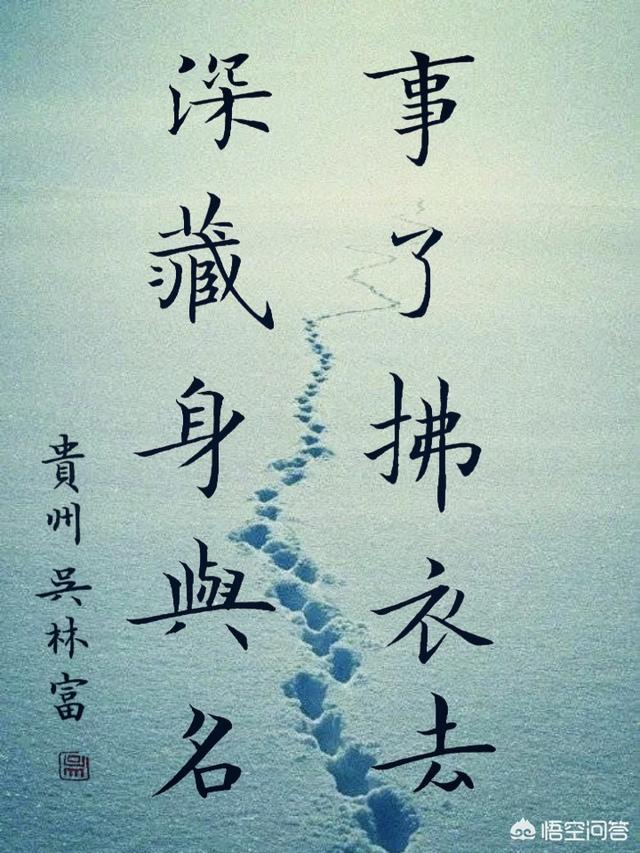 事了拂衣去
深藏身與名
貴州吳林富
悟空问答